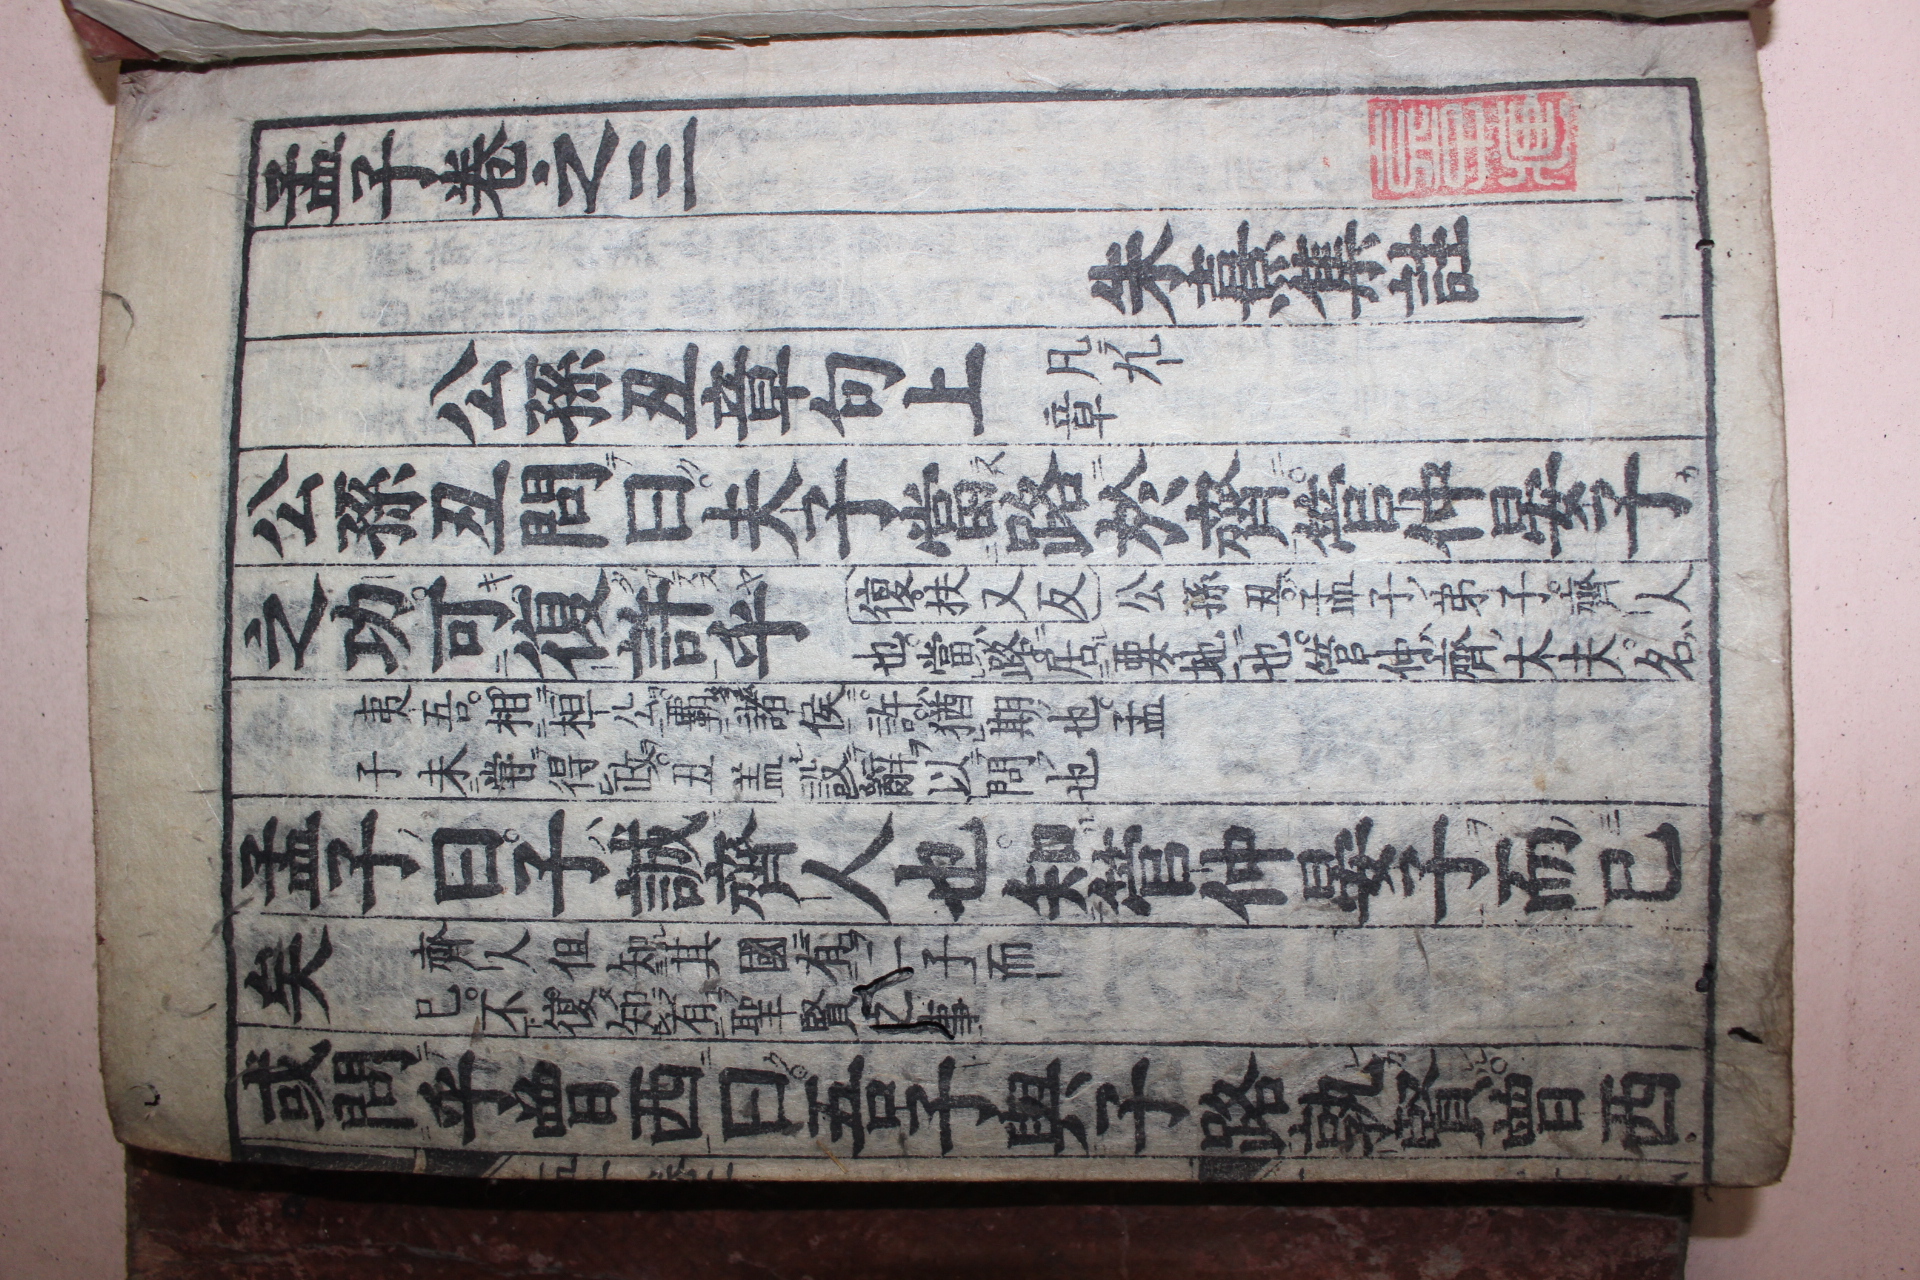 孟子卷之三
朱熹集註
公孫丑章句上
凡九
章
公孫丑問曰。夫子當路於齊。管仲晏子
之功。可復許乎
復。扶又反
公孫丑。孟子弟子。齊人
也。當路。居要地也。管仲。齊大夫。名
夷吾。相桓公。霸諸侯。許。猶期也。孟
子未嘗得政。丑蓋設辭以問也
孟子曰。子誠齊人也。知管仲晏子而已
矣
齊人但知其國有二子而
已。不復知有聖賢之事
或問乎曾西曰。吾子與子路孰賢。曾西